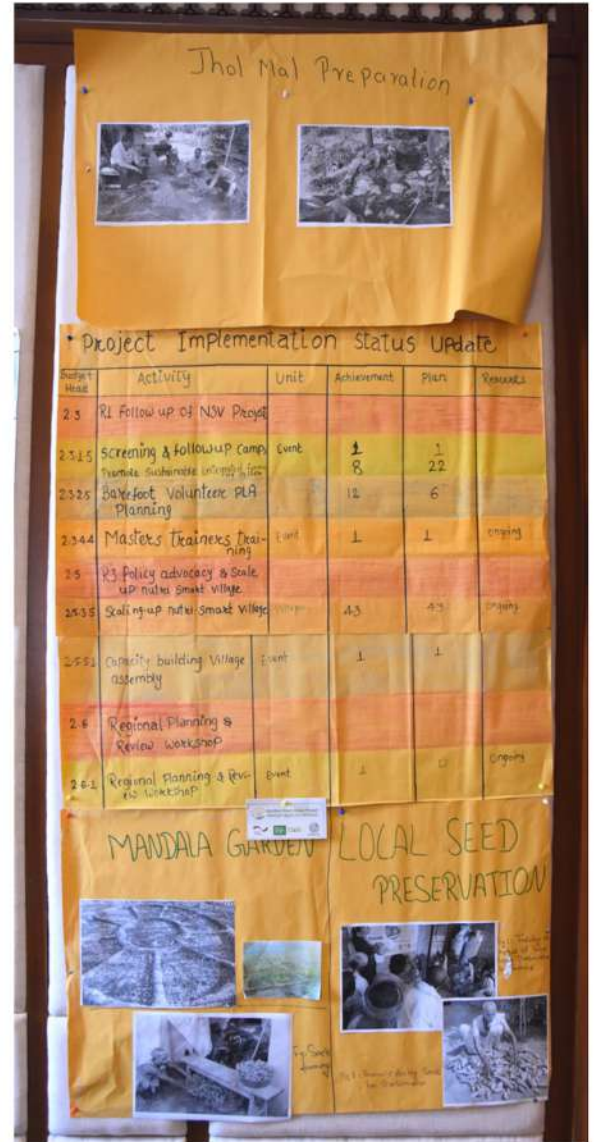 Jhol Mal Preparation
* Project Implementation Status Update
Budget Head Activity Unit Achievement Plan Remarks
2.3 R1 Follow up of NSV Project
2.3.1.5 Screening & followup Camp, Event 1 1
Promote Sustainable 8 22
2.3.2.5 Barefoot Volunteers PLA 12 6
Planning
2.3.4.4 Masters Trainers trai- Event 1 1 ongoing
ning
2.5 R3 Policy advocacy & Scale
up nutri smart village
2.5.3.5 Scaling-up nutri Smart Village 43 43 Ongoing
2.5.5.1 Capacity building Village Event 1 1
assembly
2.6 Regional Planning &
Review workshop
2.6.1 Regional Planning & Revi- Event 1 Ongoing
ew workshop
MANDALA GARDEN
LOCAL SEED
PRESERVATION